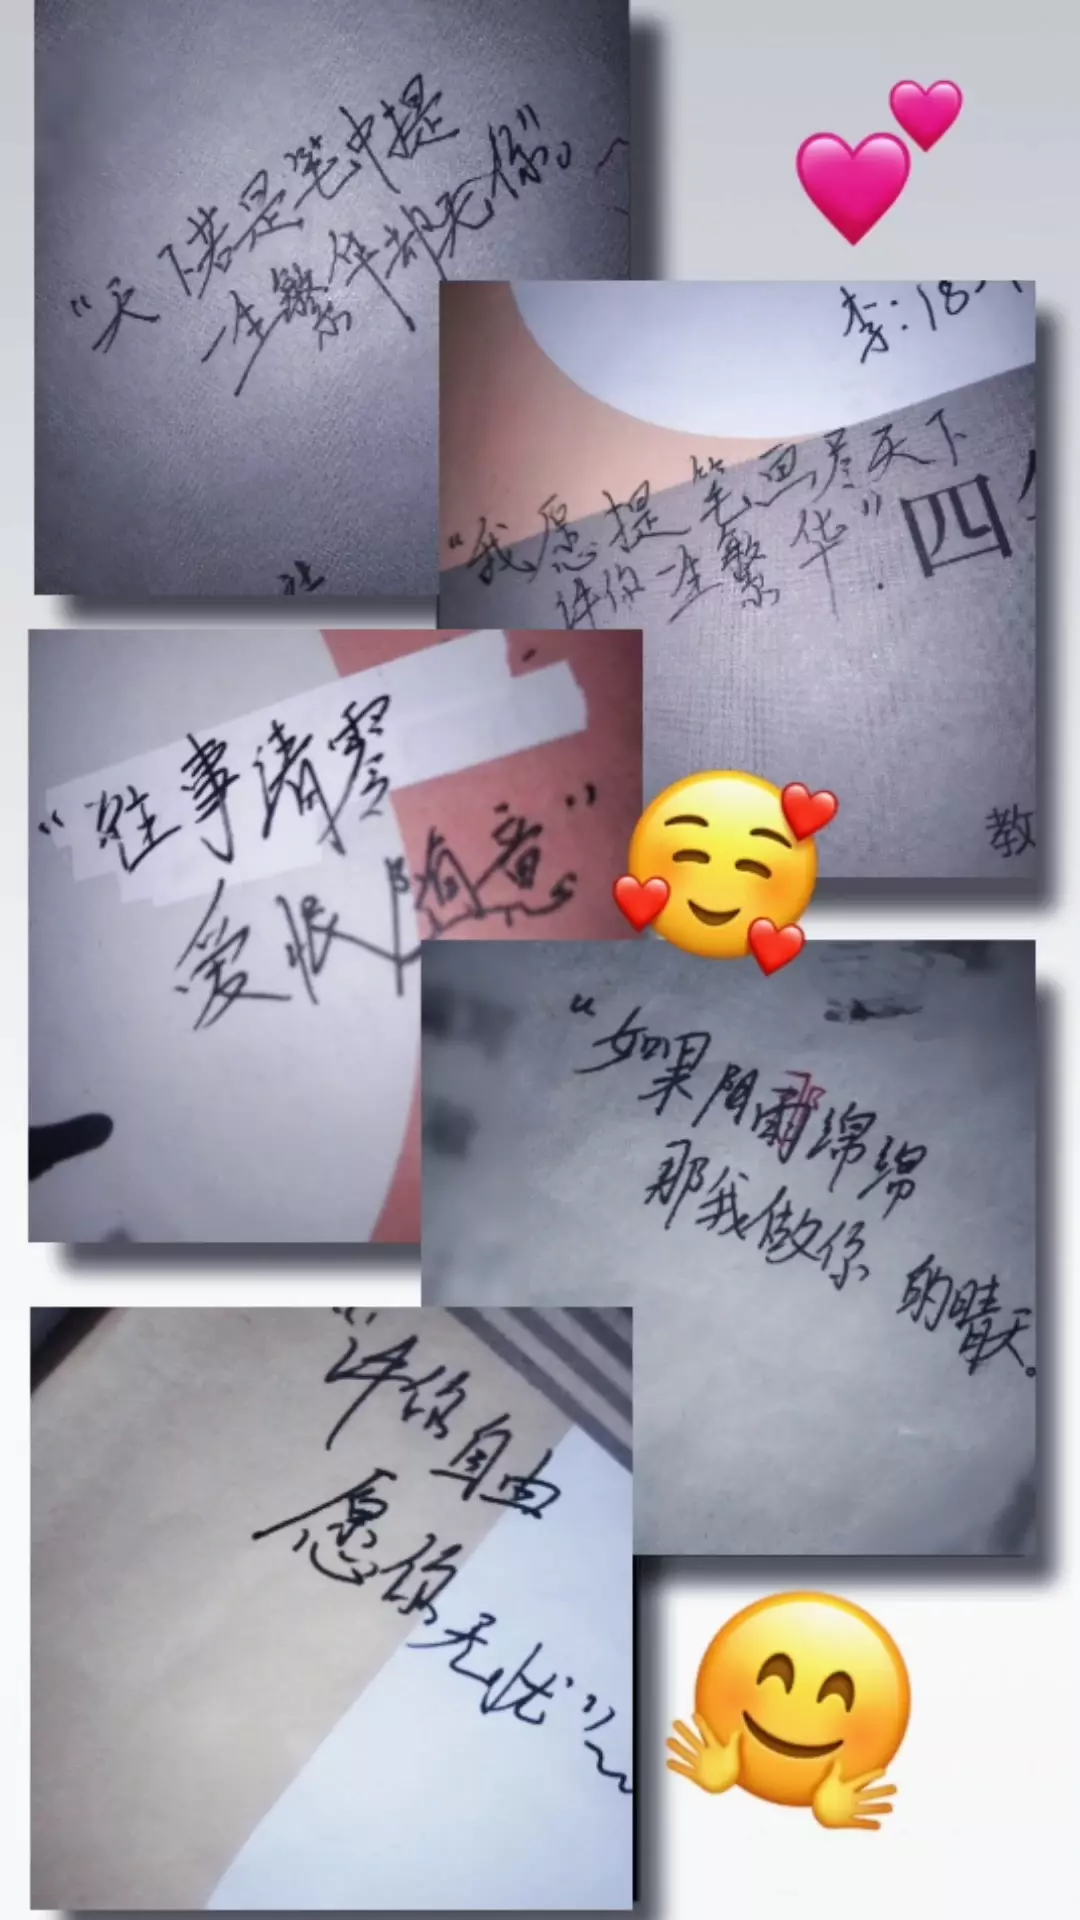 “天下若是笔中提
一生繁华却无你”。
李:18-1
“我愿提笔画尽天下
许你一生繁华”.
四
教
“往事清零
爱恨随意”
“如果阴雨绵绵
那我做你的晴天。
“许你自由
愿你无忧”~